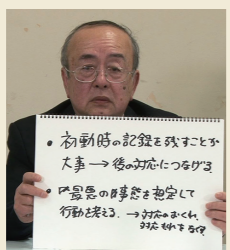 • 初動時の記録を残すことが
大事 → 後の対応につなげる
• 最悪の事態を想定して
行動を考える. → 対応のおくれ、
対応もれをなくす